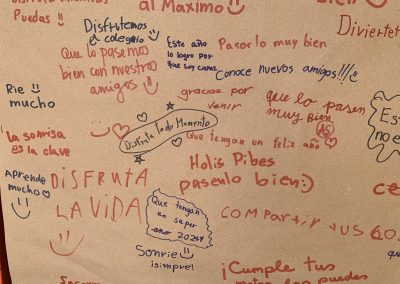 Puedas
al Maximo
Disfrutemos
el colegario
Que lo pasemos
bien con nuestros
amigos
Este año
lo logro por
que soy capaz
Pasarlo muy bien
Conoce nuevos amigos!!!
Rie
mucho
gracias por
venir
que lo pasen
muy bien
AS
la sonrisa
es la clave
Disfruta todo Momento
Que tengan un feliz año
Holis Pibes
pasenlo bien:)
Aprende
mucho
DISFRUTA
LA VIDA
Que tengan
un super
año 2024
Sonrie
¡simpre!
COMPARTIR TUS
¡Cumple tus